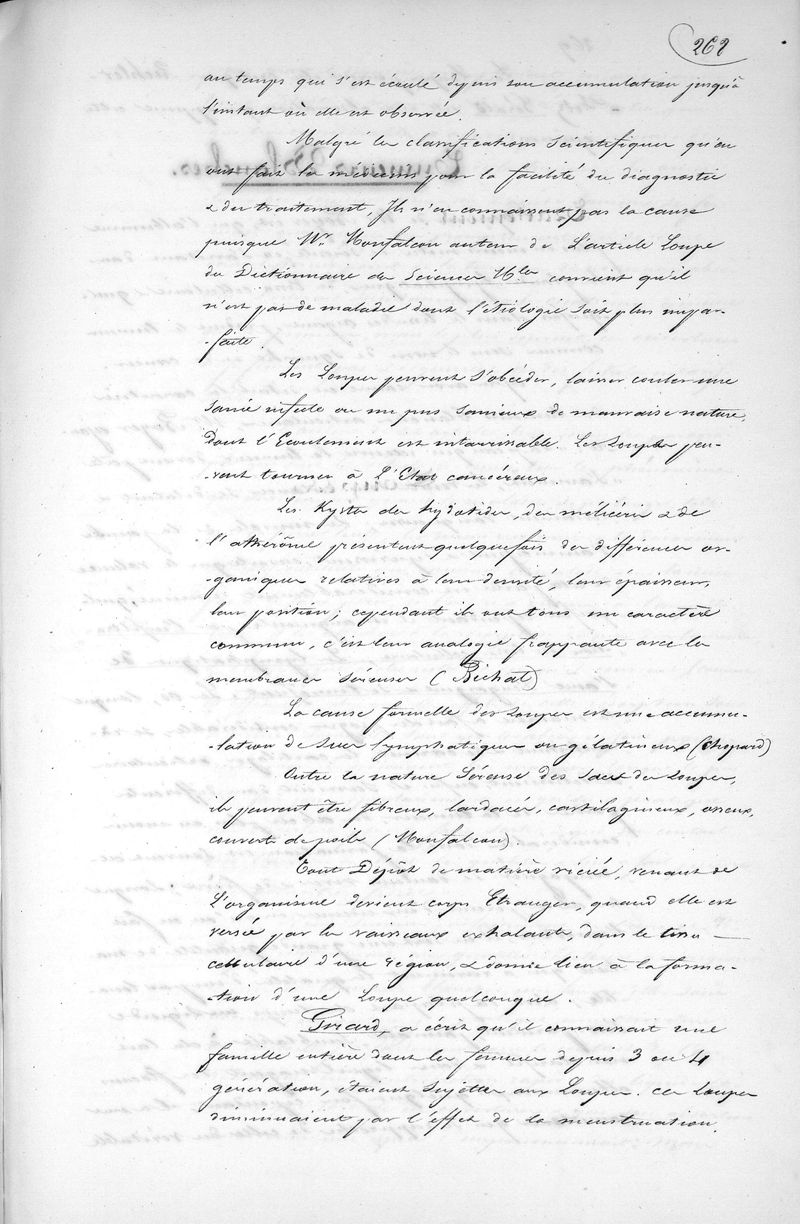 262
au temps qui s'est écoulé depuis son accumulation jusqu'à
l'instant où elle est observée.
Malgré les classifications scientifiques qu'en
ont fait les médecins pour la facilité du diagnostic
& du traitement, Ils n'en connaissent pas la cause
puisque Mr. Monfalcon auteur de L'article Loupe
du Dictionnaire des Sciences Mles convient qu'il
n'est pas de maladie dont l'étiologie soit plus impar-
-faite.
Les Loupes peuvent s'abcéder, laisser couler une
sanie infecte ou un pus sanieux de mauvaise nature,
dont l'Ecoulement est intarissable. Les Loupes peu-
-vent tourner à l'Etat cancéreux.
Les Kystes des hydatides, des méliceris & de
l'athérôme présentent quelquefois des différences or-
-ganiques relatives à leur densité, leur épaisseur,
leur position; cependant ils ont tous un caractère
commun, c'est leur analogie frappante avec les
membranes séreuses (Bichat)
La cause formelle des Loupes est une accumu-
-lation de sucs lymphatiques ou gélatineux (Chopard)
Outre la nature séreuse des sacs des Loupes,
ils peuvent être fibreux, lardacés, cartilagineux, osseux,
couverts de poils (Monfalcon).
Tout Dépôt de matière viciée, venant de
L'organisme devient corps Etranger, quand elle est
versée par les vaisseaux exhalants, dans le tissu
cellulaire d'une région, & donne lieu à la forma-
-tion d'une Loupe quelconque.
Girard, a écrit qu'il connaissait une
famille entière dont les femmes depuis 3 ou 4
génération, étaient sujettes aux Loupes. ces Loupes
diminuaient par l'effet de la menstruation.